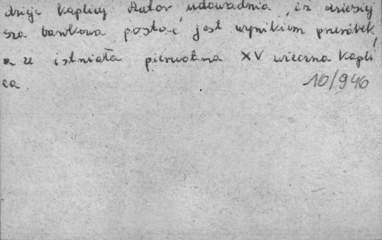 dzieje kaplicy Autor udowadnia, iż dzisiej
sza barokowa postać jest wynikiem przeróbek,
a że istniała pierwotna XV wieczna kapli
ca
10/946